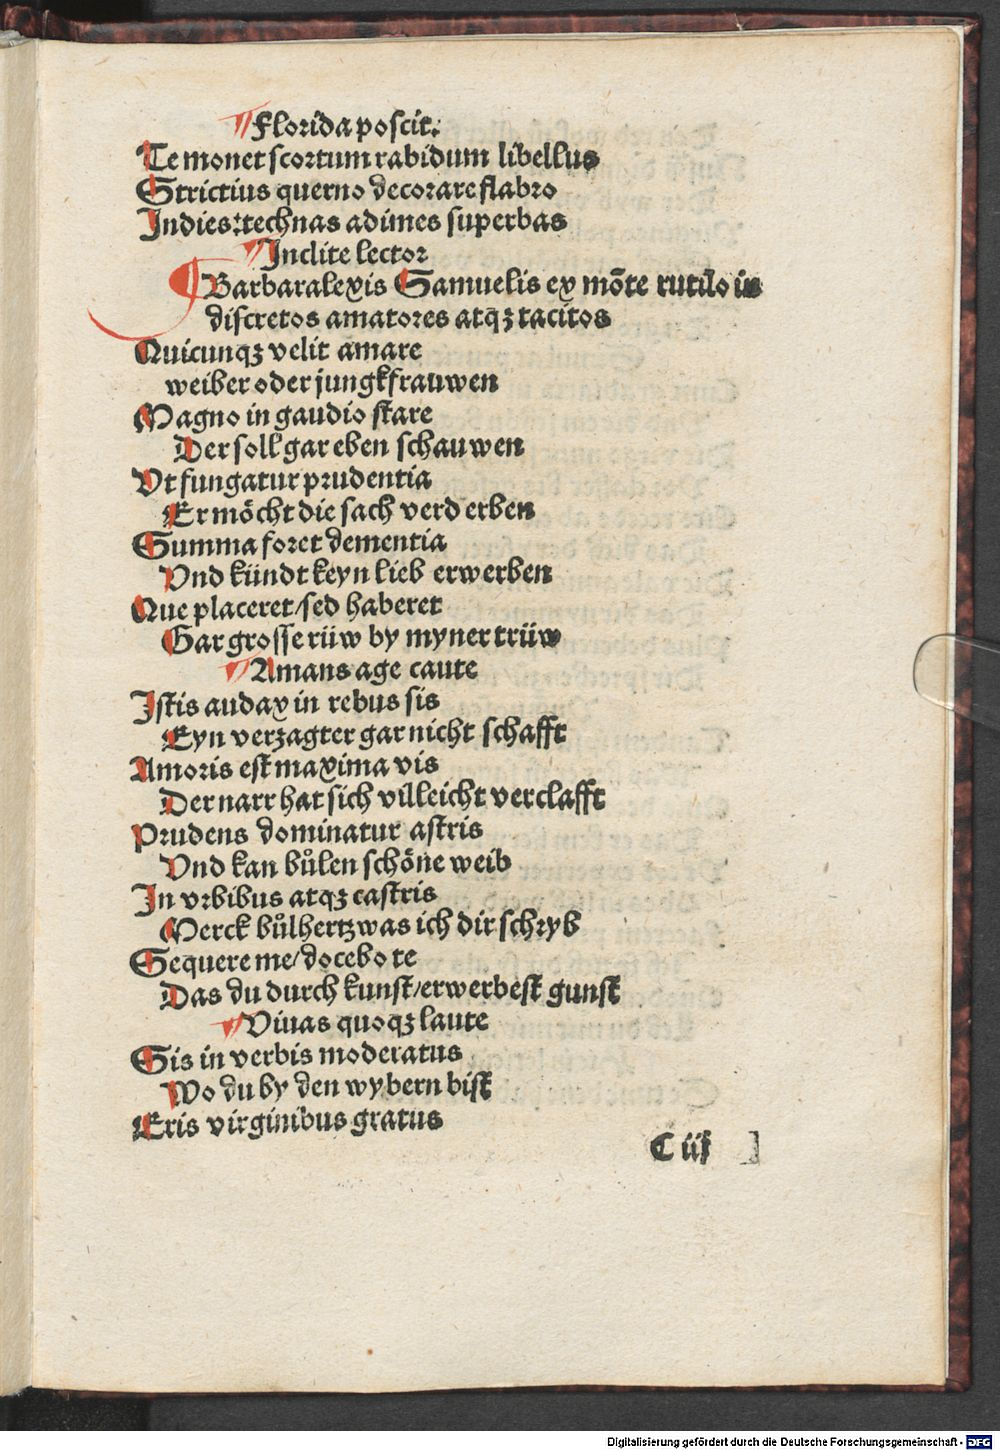 Florida poscit.
Te monet scortum rabidum libellus
Strictius querno decorare flabro
Indies: technas adimes superbas
Inclite lector
Barbaralexis Samuelis ex mōte rutilo in
discretos amatores atqꝫ tacitos
Quicunqꝫ velit amare
weiber oder jungkfrauwen
Magno in gaudio stare
Der soll gar eben schauwen
Vt fungatur prudentia
Er möcht die sach verderben
Summa foret dementia
Vnd kündt keyn lieb erwerben
Que placeret/sed haberet
Gar grosse rüw by myner trüw
Amans age caute
Istis audax in rebus sis
Eyn verzagter gar nicht schafft
Amoris est maxima vis
Der narr hat sich villeicht verclafft
Prudens dominatur astris
Vnd kan bůlen schöne weib
In vrbibus atqꝫ castris
Merck bůlhertz was ich dir schryb
Sequere me/docebo te
Das du durch kunst/erwerbest gunst
Viuas quoqꝫ laute
Sis in verbis moderatus
Wo du by den wybern bist
Eris virginibus gratus
C iij ]
Digitalisierung gefördert durch die Deutsche Forschungsgemeinschaft - DFG